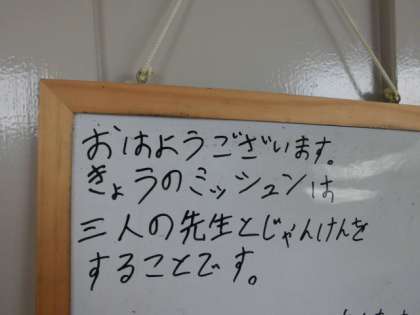 おはようございます。
きょうのミッションは
三人の先生とじゃんけんを
することです。